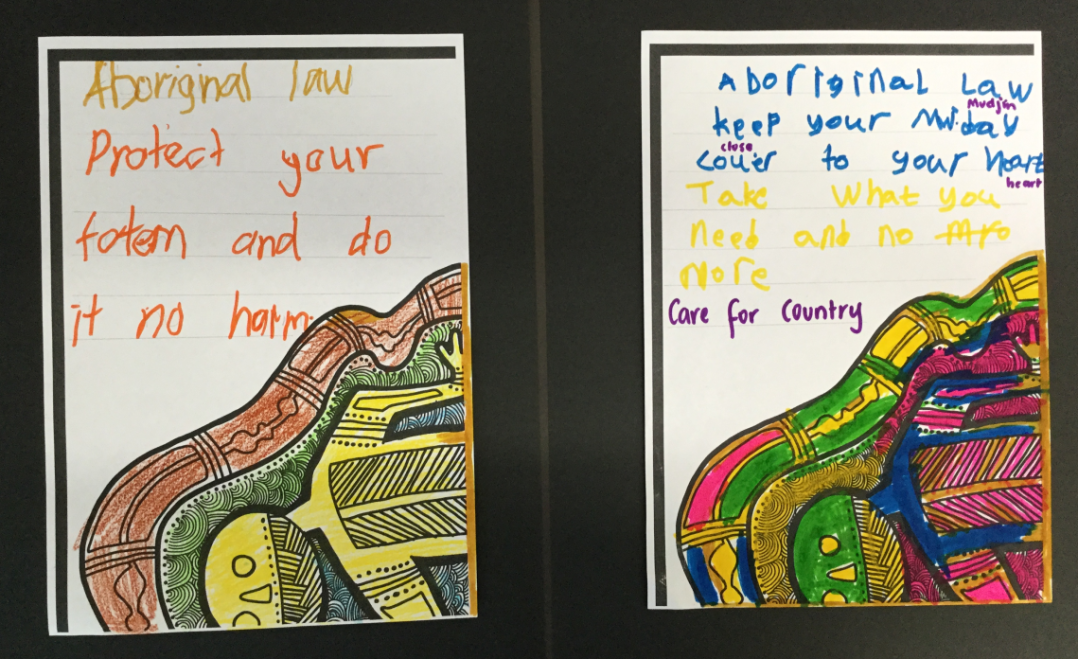 Aboriginal law
Protect your
totem and do
it no harm.
Aboriginal Law
Mudjin
keep your
close
to your heart
heart
Take what you
need and no
More
Care for Country